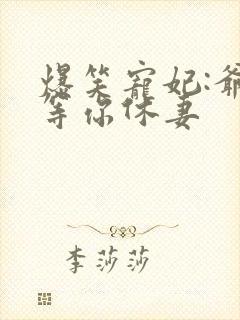 爆笑宠妃:爷
等你休妻
李莎莎